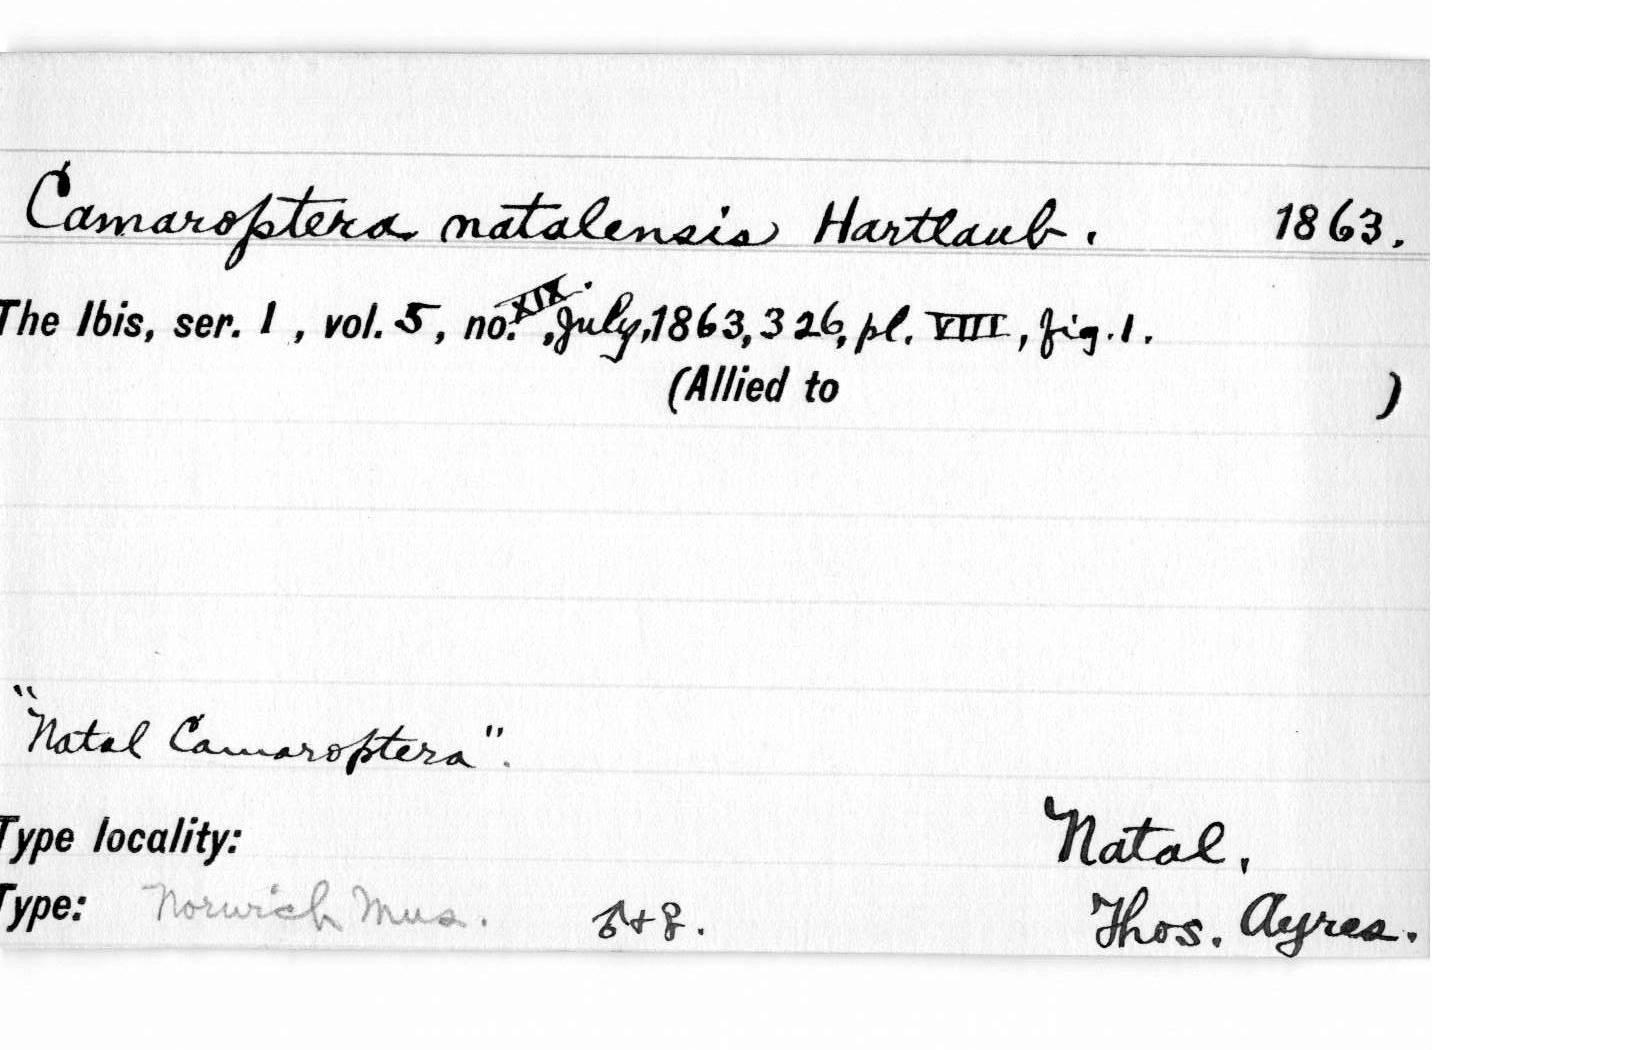 Camaroptera natalensis Hartlaub. 1863.
The Ibis, ser. 1, vol. 5, no. XIX., July, 1863, 326, pl. VIII, fig. 1.
(Allied to )
"Natal Camaroptera".
Type locality: Natal,
Type: Norwich Mus. ♂+♀. Thos. Ayres.